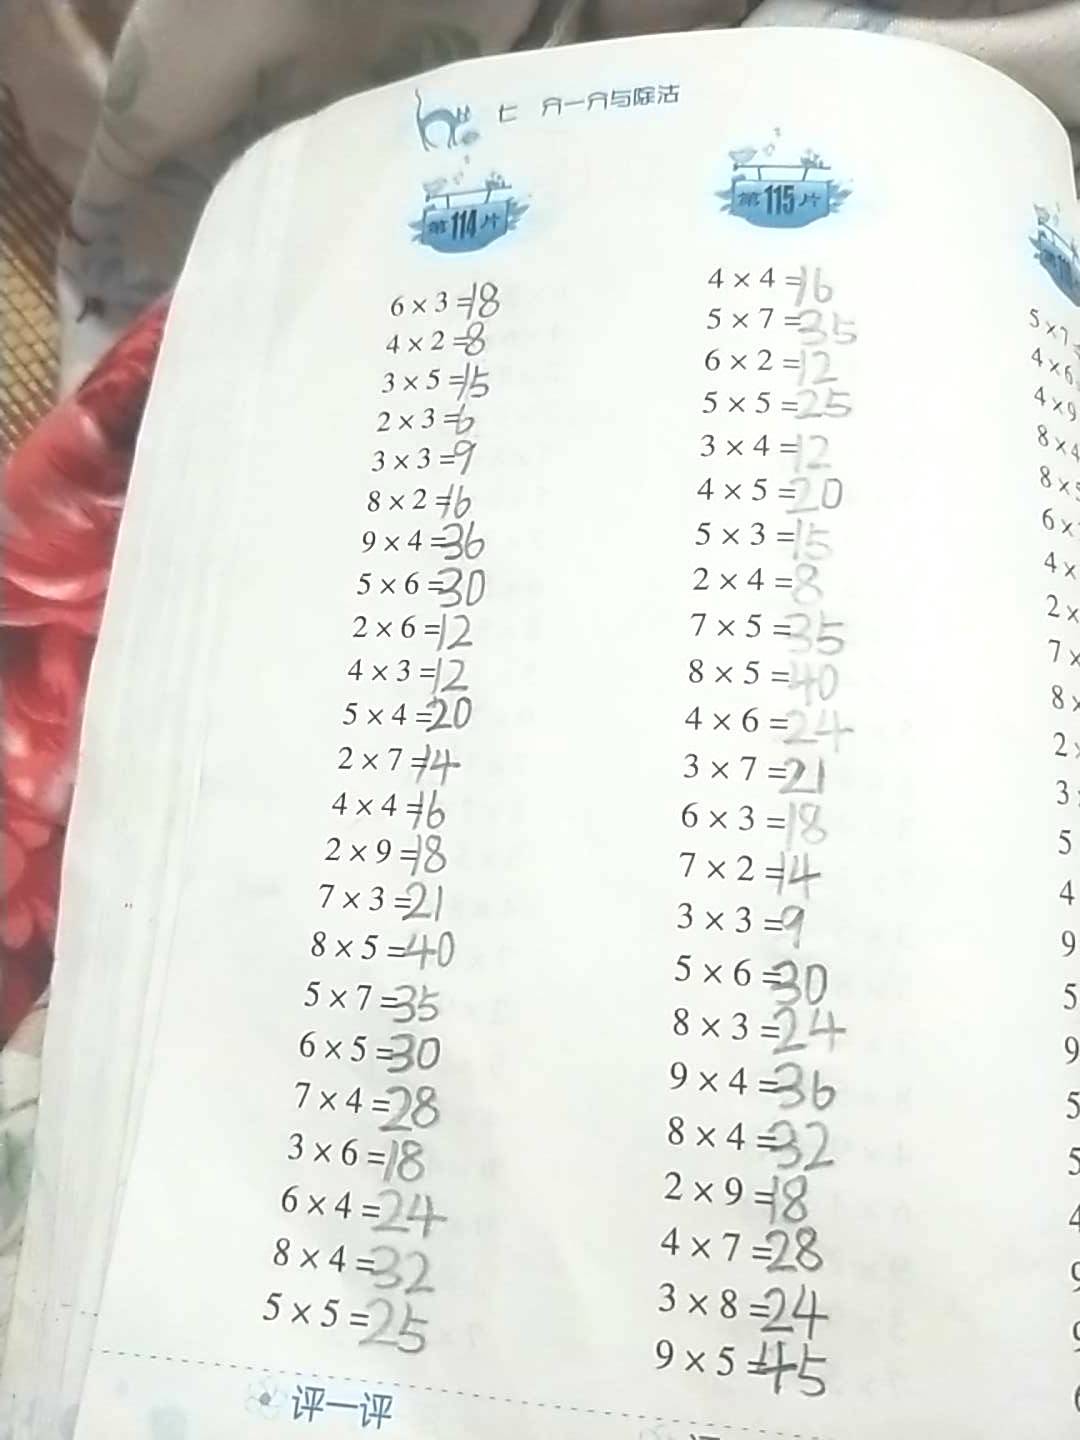 七 分一分与除法
第114片
6 × 3 =18
4 × 2 =8
3 × 5 =15
2 × 3 =6
3 × 3 =9
8 × 2 =16
9 × 4 =36
5 × 6 =30
2 × 6 =12
4 × 3 =12
5 × 4 =20
2 × 7 =14
4 × 4 =16
2 × 9 =18
7 × 3 =21
8 × 5 =40
5 × 7 =35
6 × 5 =30
7 × 4 =28
3 × 6 =18
6 × 4 =24
8 × 4 =32
5 × 5 =25
评一评
第115片
4 × 4 =16
5 × 7 =35
6 × 2 =12
5 × 5 =25
3 × 4 =12
4 × 5 =20
5 × 3 =15
2 × 4 =8
7 × 5 =35
8 × 5 =40
4 × 6 =24
3 × 7 =21
6 × 3 =18
7 × 2 =14
3 × 3 =9
5 × 6 =30
8 × 3 =24
9 × 4 =36
8 × 4 =32
2 × 9 =18
4 × 7 =28
3 × 8 =24
9 × 5 =45
5 × 7
4 × 6
4 × 9
8 × 4
8 × 5
6 ×
4 ×
2 ×
7 ×
8 ×
2
3
5
4
9
5
9
5
5
4